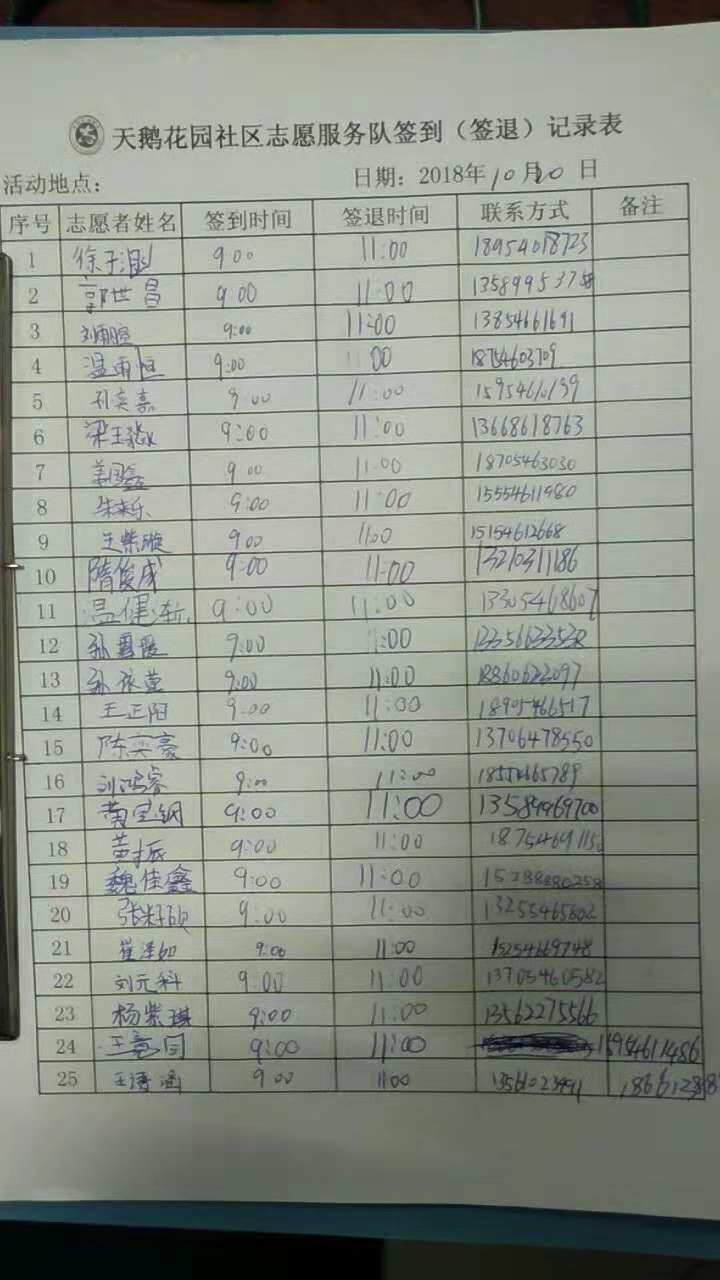 天鹅花园社区志愿服务队签到（签退）记录表
活动地点： 日期：2018年10月20日
序号 志愿者姓名 签到时间 签退时间 联系方式 备注
1 徐子 9 00 11:00 18954018723
2 郭世昌 9:00 11:00
3 刘雨 9:00 11:00 13854661691
4 温雨恒 9:00 00 18754603709
5 孙奕嘉 9:00 11:00 15954610139
6 梁王 9:00 11:00 13668618763
7 9 00 11:00 18705463030
8 朱来乐 9:00 11:00 15554611980
9 王紫璇 9 00 11:00 15154612668
10 隋俊成 9:00 11:00 13210311186
11 温健 9:00 11:00 13305468607
12 孙 9:00 11:00
13 孙依萱 9:00 11:00 18860622097
14 王正阳 9:00 11:00 18905466517
15 陈奕豪 9:00 11:00 13706478550
16 刘鸿睿 9:00 11:00 18554665789
17 9:00 11:00 13589969700
18 黄振 9:00 11:00
19 魏佳鑫 9:00 11:00 15288880258
20 张 9:00 11:00 13255465602
21 崔泽如 9:00 11:00 15254669748
22 刘元科 9:00 11:00 13705460582
23 杨紫琪 9:00 11:00 13562275566
24 王 9:00 11:00 15954611486
25 王语涵 9 00 11:00 13561023991